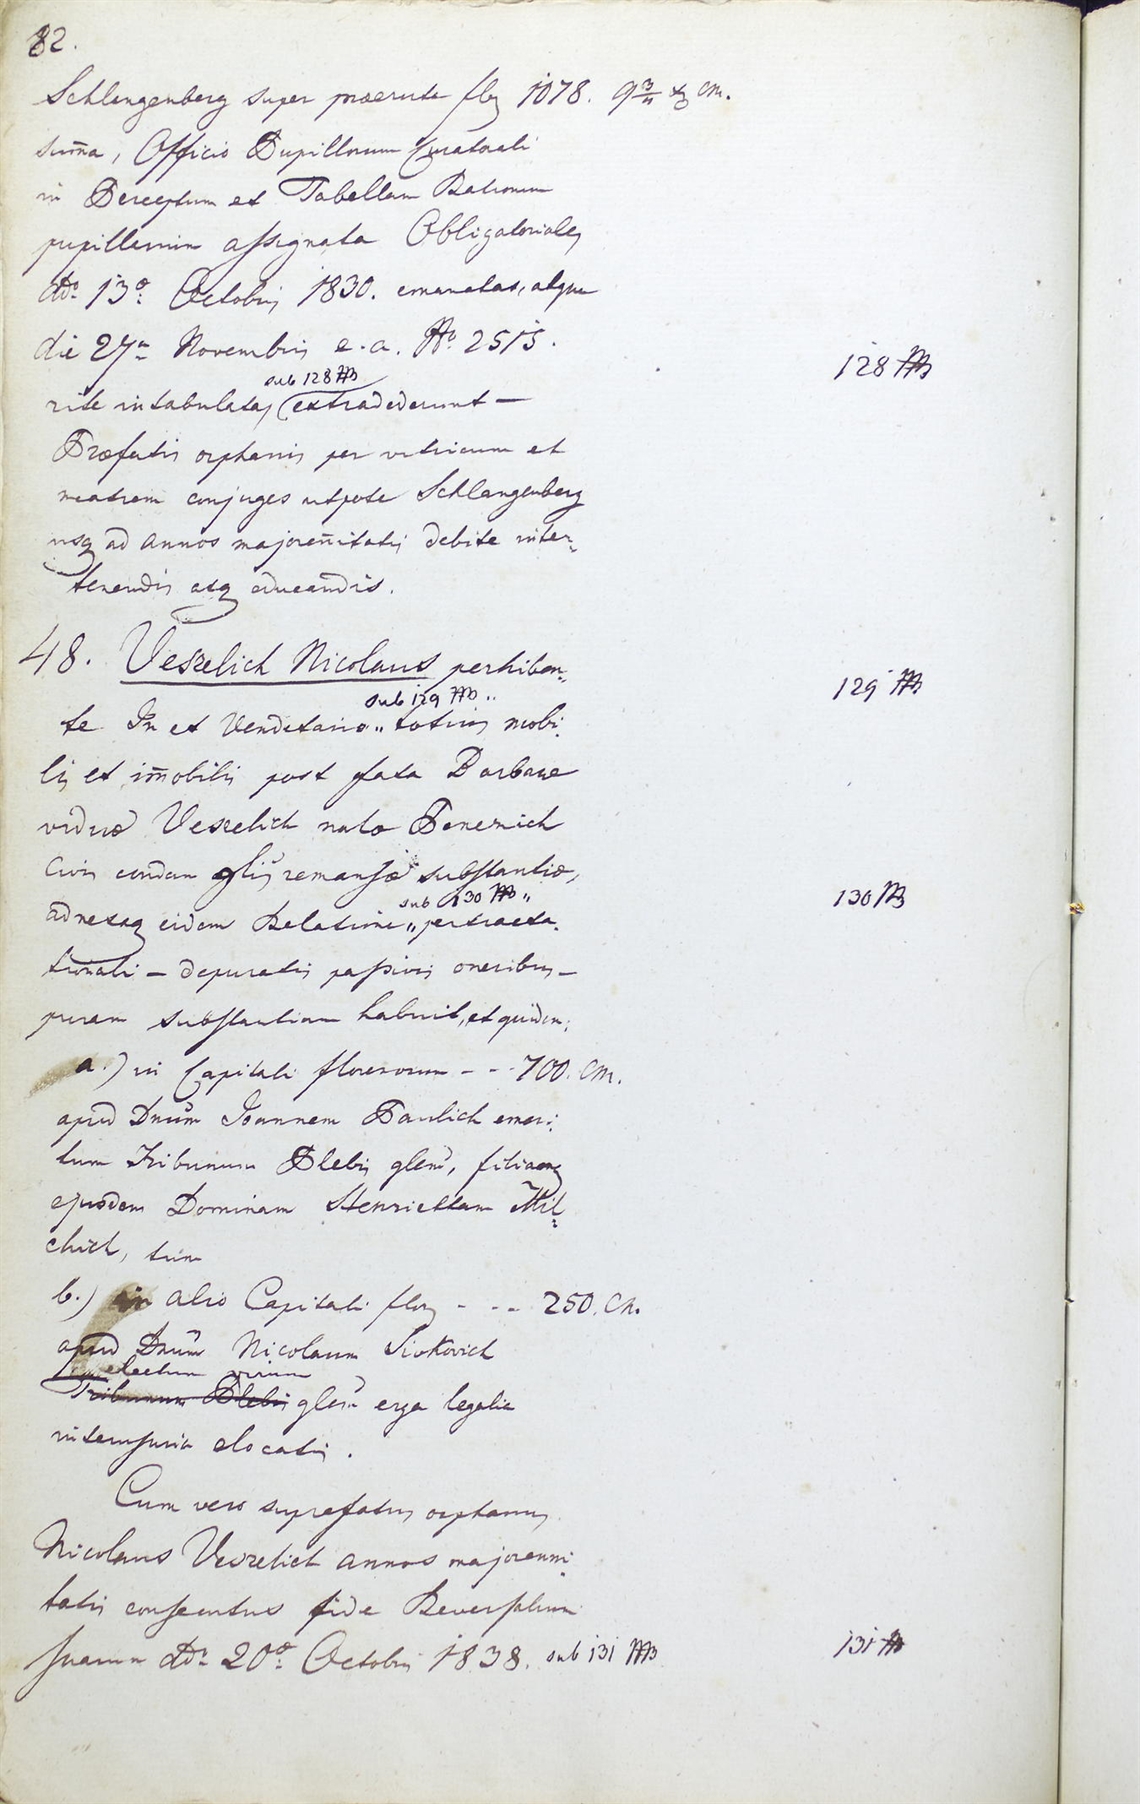 82.
Schlangenberg super præerute flg 1078. 9 3/4 xg CM.
sum̄a, Officio Pupillorum Curatorali
in Perceptum et Tabellam Rationum
pupillarium assignata Obligatoriales
ddo 13o Octobris 1830. emanatas, atque
die 27a Novembris e. a. No 2515.
128
sub 128
rite intabulatas extradederunt —
Præfatis orphanis per vitricum et
matrem conjuges utpote Schlangenberg
usq ad annos majoren̄itatis debite inter-
tenendis atq educandis.
48. Veszelich Nicolaus perhiben-
129
sub 129
te In et Venditario „ totius mobi-
lis et im̄obilis post fata Barbaræ
viduæ Veszelich natæ Penezich
Civis condam glis remansæ substantiæ,
130
sub 130
adnexaq eidem Relatione „ pertracta-
tionali — depuratis passivis oneribus —
puram substantiam habuit, et quidem;
a.) in Capitali florenorum - - - 700. CM.
apud Dnum Joannem Paulich emeri-
tum Tribunum Plebis glem, filiamq
ejusdem Dominam Henriettam Mil-
chich, tum
b.) in alio Capitali flor - - - 250. CM.
apud Dnum Nicolaum Sivkovich
electum virum
Tribunum Plebis glem erga legalia
interusuria elocatis.
Cum vero suprafatus orphanus
Nicolaus Veszelich annos majorenni-
tatis consecutus fide Reversalium
suarum ddo 20o Octobris 1838. sub 131
131